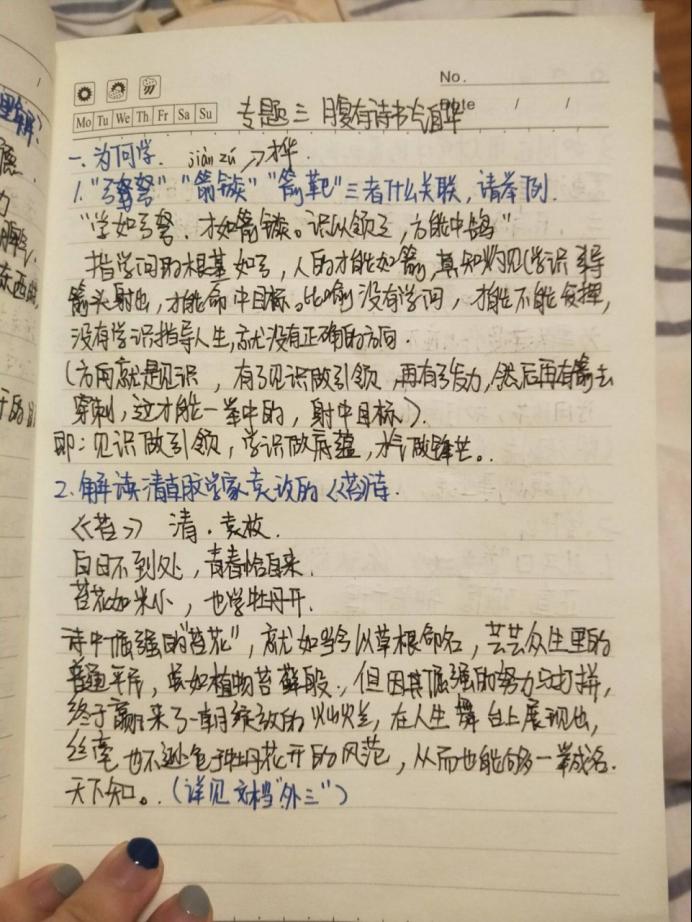 No.
Date / /
Mo Tu We Th Fr Sa Su
专题三 腹有诗书气自华
一.为何学. jiàn zú →才华.
1."弓弩" "箭镞" "箭靶"三者什么关联,请举例.
"学如弓弩.才如箭镞。识以领之,方能中鹄"
指学问的根基如弓,人的才能如箭,真知灼见(学识)引导
箭头射出,才能命中目标。比喻没有学问,才能不能发挥,
没有学识指导人生,就没有正确的方向.
(方向就是见识,有了见识做引领,再有弓发力,然后再有箭去
穿刺,这才能一举中的,射中目标).
即:见识做引领,学识做底蕴,才气做锋芒。
2.解读清朝文学家袁枚的《苔》诗.
《苔》 清.袁枚.
白日不到处,青春恰自来.
苔花如米小,也学牡丹开.
诗中倔强的"苔花",就如当今以草根命名,芸芸众生里的
普通平凡,莫如植物苔藓般,但因其倔强的努力与打拼,
终于赢来了一朝绽放的灿烂,在人生舞台上展现出,
丝毫也不逊色于牡丹花开的风范,从而也能够一举成名.
天下知。(详见文档"外三")